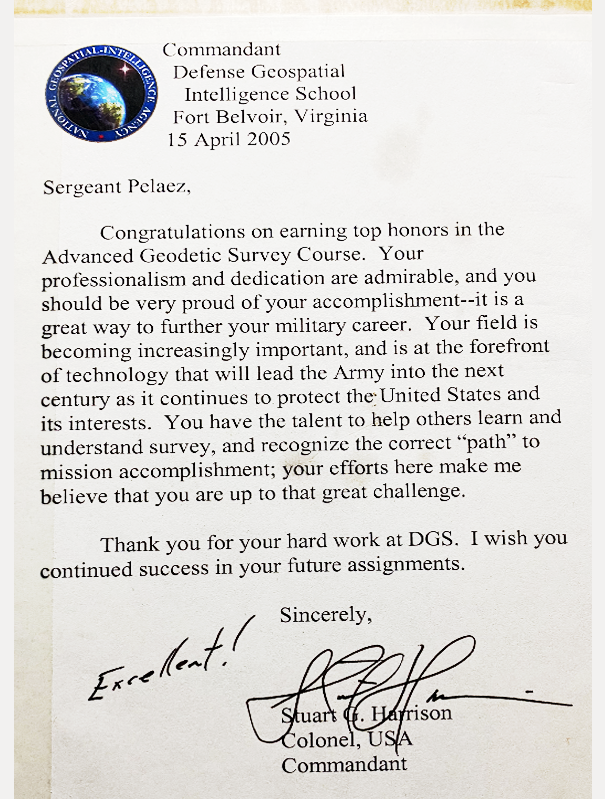 NATIONAL GEOSPATIAL-INTELLIGENCE AGENCY
Commandant
Defense Geospatial
Intelligence School
Fort Belvoir, Virginia
15 April 2005
Sergeant Pelaez,
Congratulations on earning top honors in the
Advanced Geodetic Survey Course.  Your
professionalism and dedication are admirable, and you
should be very proud of your accomplishment--it is a
great way to further your military career.  Your field is
becoming increasingly important, and is at the forefront
of technology that will lead the Army into the next
century as it continues to protect the United States and
its interests.  You have the talent to help others learn and
understand survey, and recognize the correct “path” to
mission accomplishment; your efforts here make me
believe that you are up to that great challenge.
Thank you for your hard work at DGS.  I wish you
continued success in your future assignments.
Sincerely,
Excellent!
Stuart G. Harrison
Colonel, USA
Commandant